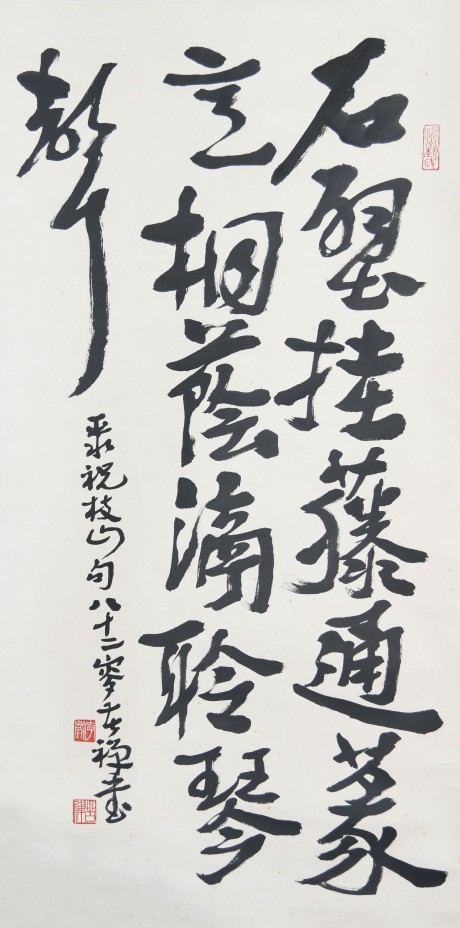 石壁挂藤通篆
意桐蔭滴聆琴
聲
录祝枝山句八十二苦禅书